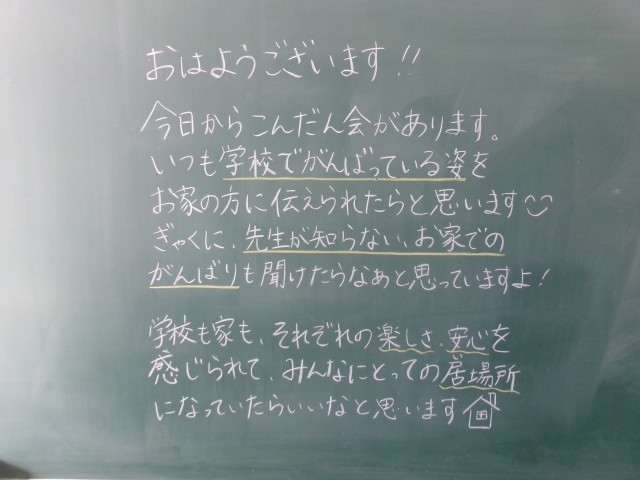 おはようございます!!
今日からこんだん会があります。
いつも学校でがんばっている姿を
お家の方に伝えられたらと思います
ぎゃくに、先生が知らない、お家での
がんばりも聞けたらなあと思っていますよ!
学校も家も、それぞれの楽しさ、安心を
感じられて、みんなにとっての居場所
になっていたらいいなと思います